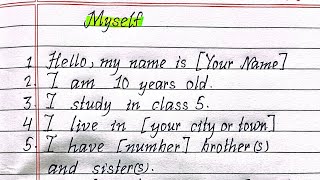 Myself
1. Hello, my name is [Your Name]
2. I am 10 years old.
3. I study in class 5.
4 I live in [your city or town]
5. I have [number] brother(s)
and sister(s).